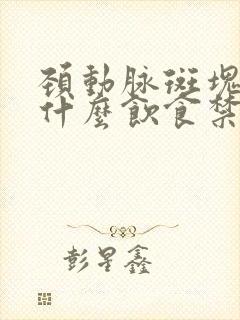 頚動脉斑塊
什麼飲食禁
彭星鑫